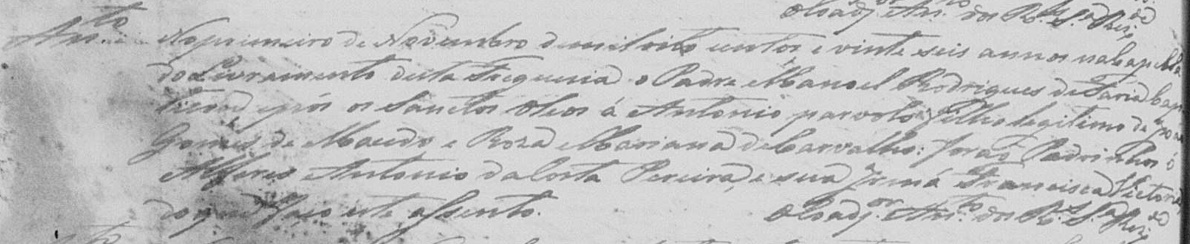 O Coadj.or Ant.o
Ant.o No primeiro de Novembro de mil oito centos e vinte seis annos na Capella
do Livramento desta Freguesia o Padre Manoel Rodrigues de Faria bap
tizou e pós os Sanctos Oleos á Antonio parvolo filho legitimo de
Gomes de Macedo e Roza Mariana de Carvalho: forão Padrinhos o
Alferes Antonio da Costa Pereira, e sua Irmã Francisca Victoria
do que faço este assento. O Coadj.or Ant.o